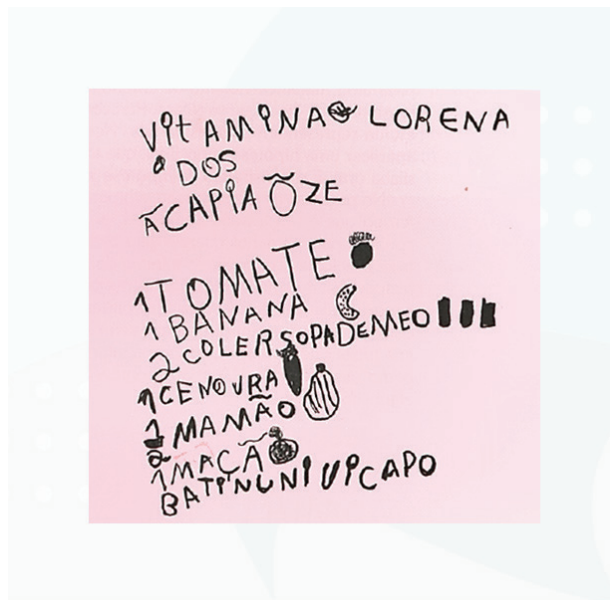 VitAMINA LORENA
DOS
ÃCAPIA ÕZE
1 TOMATE
1 BANANA
2 COLERSOPADEMEO
1 CENOURA
1 MAMÃO
1 MAÇÃ
BATINUNIVICAPO